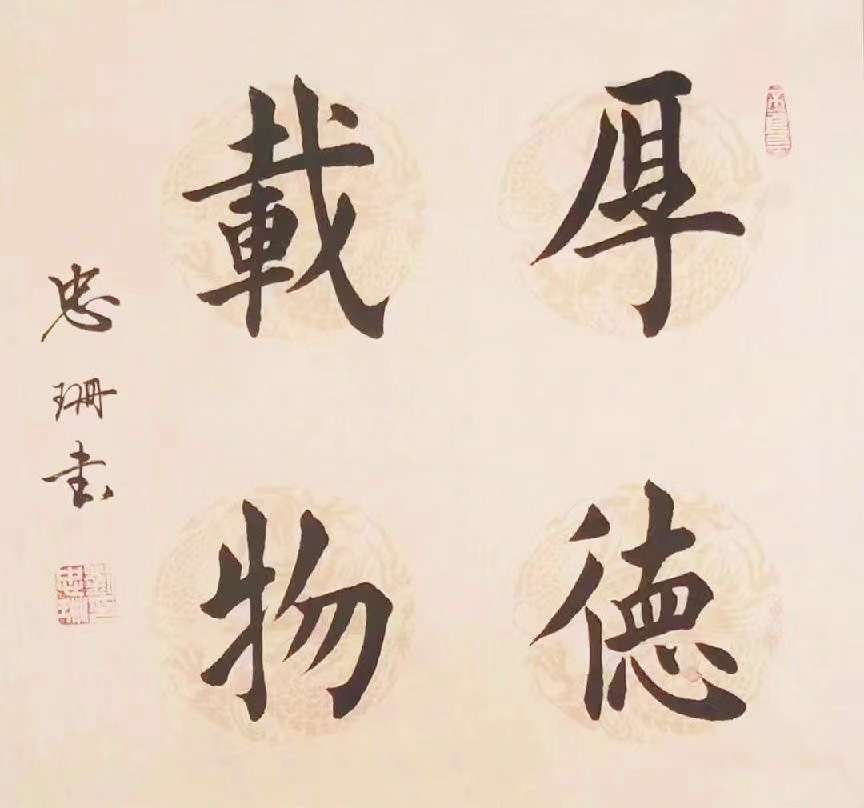 厚德
載物
忠珊书